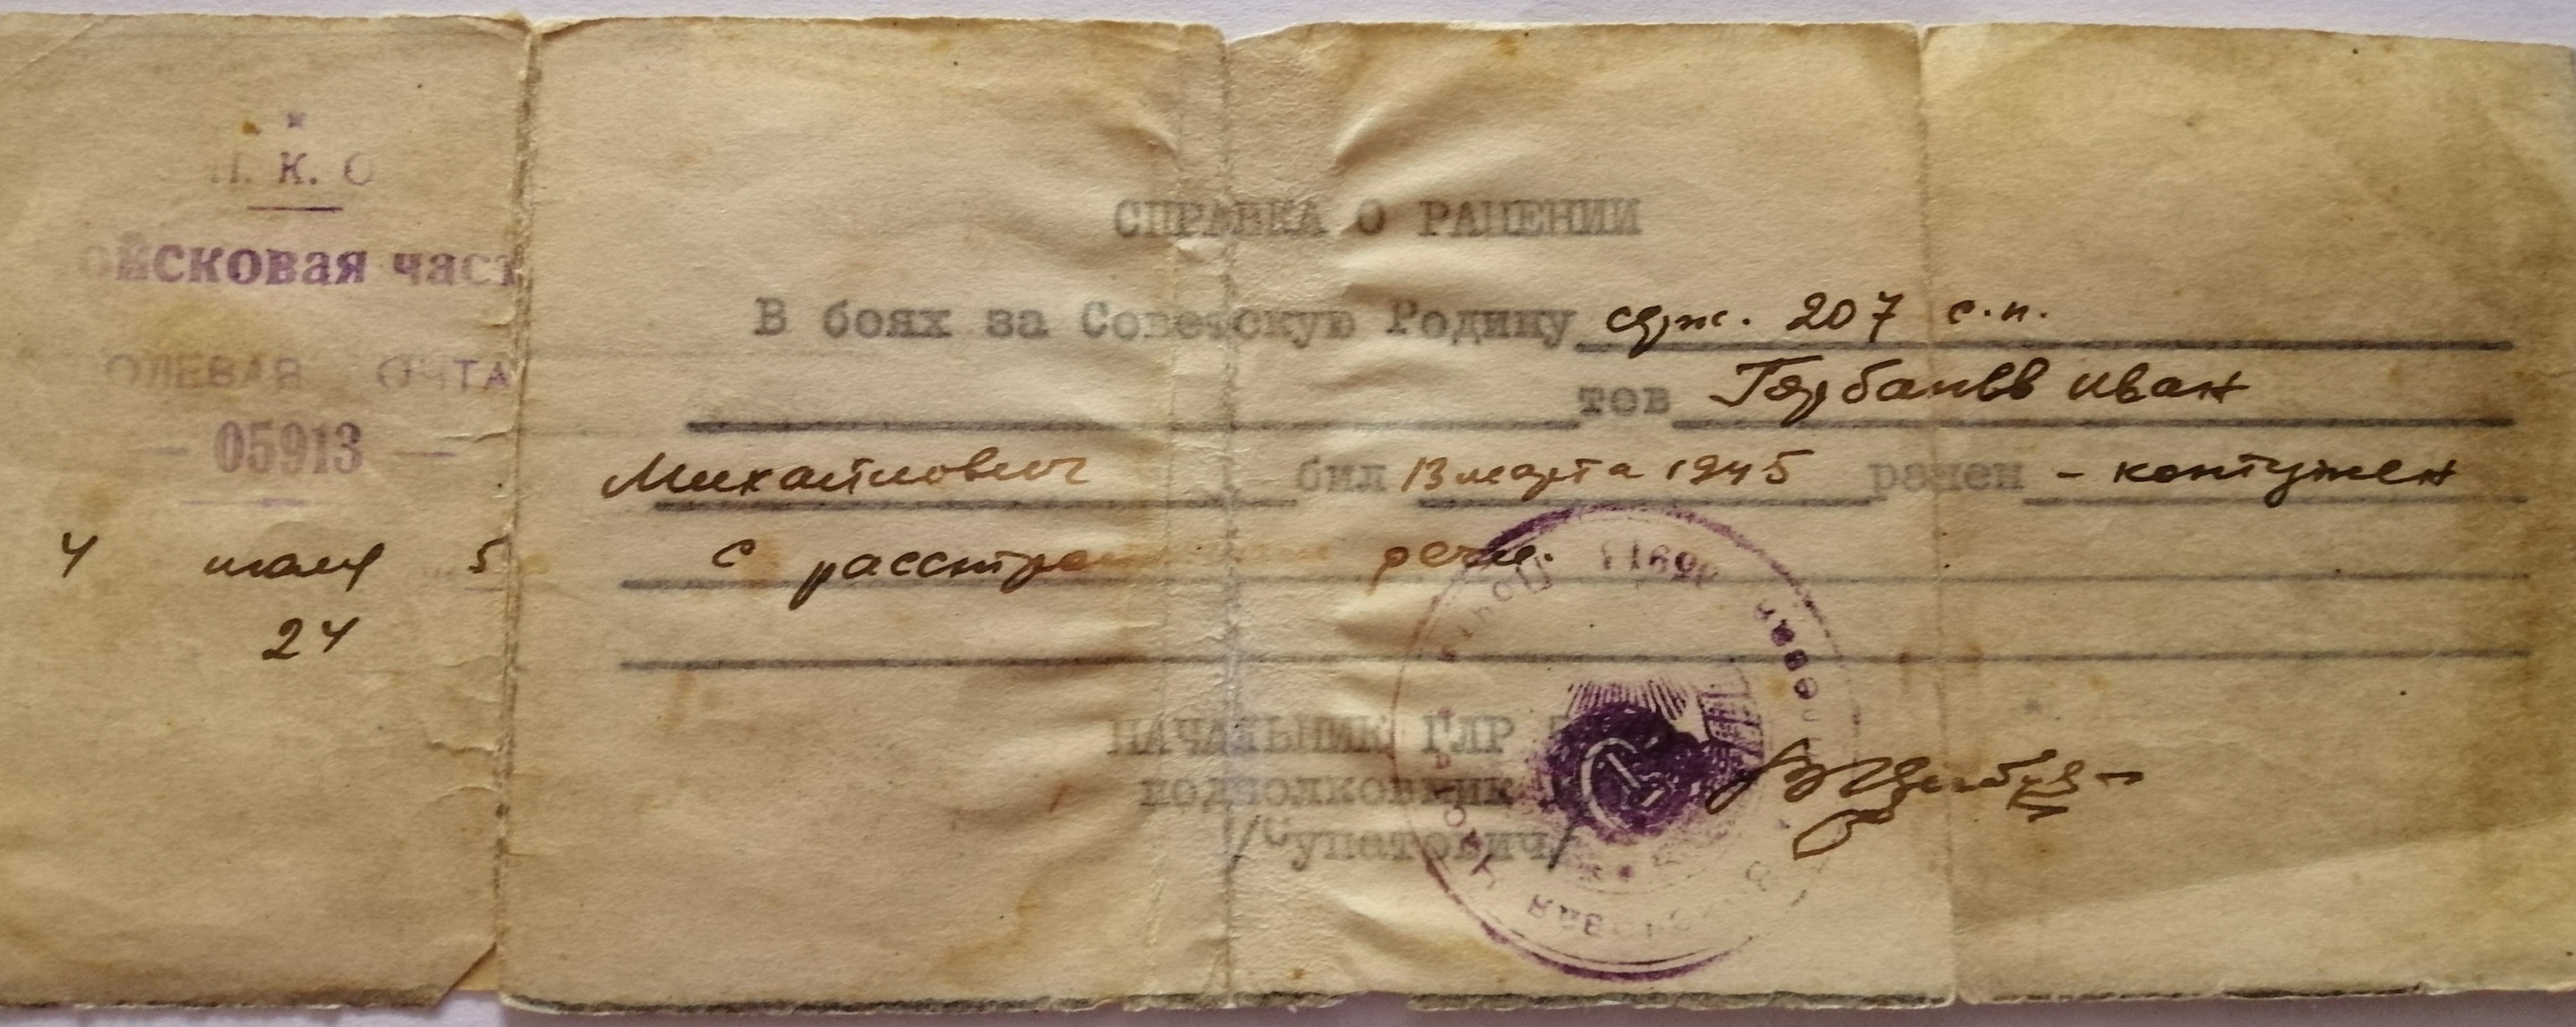 Н. К. О
ойсковая част
ОЛЕВАЯ ОЧТА
— 05913 —
4 июля 5
24
СПРАВКА О РАНЕНИИ
В боях за Советскую Родину срж. 207 с.п.
тов Горбанев Иван
Михайлович бил 13 марта 1945 ранен - контужен
с расстр речи.
НАЧАЛЬНИК ГЛР
подполковник
/Супатович/
Полевая Почта 05913